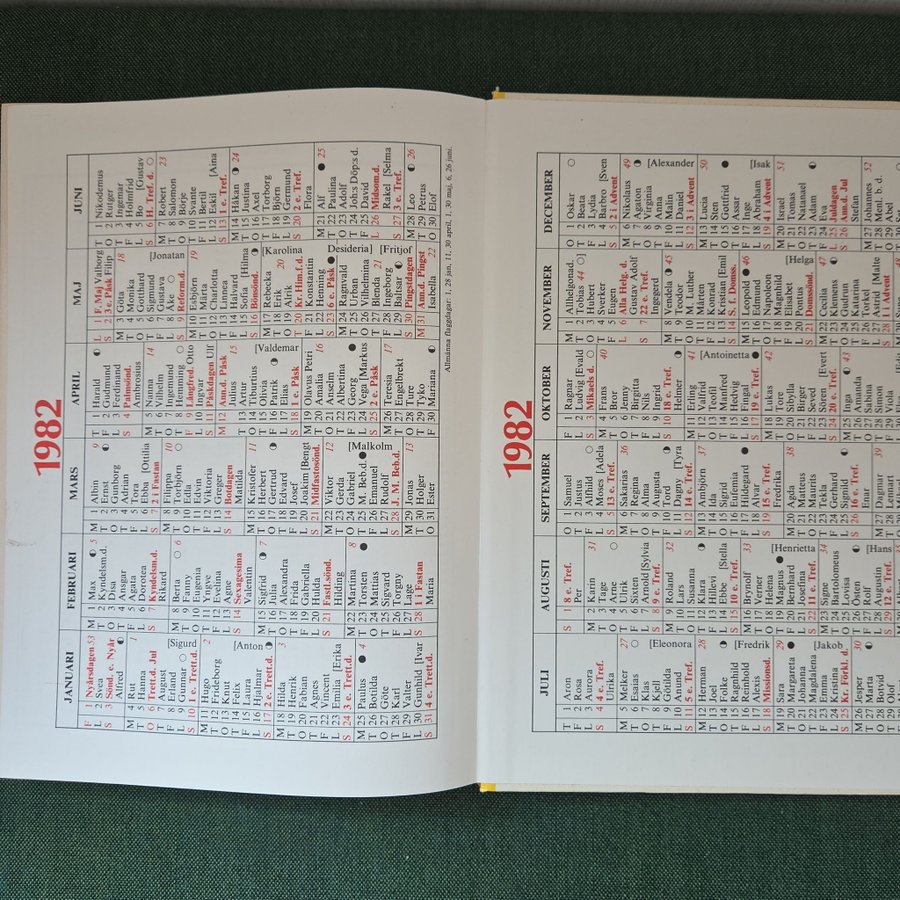 1982
JANUARI
F 1 Nyårsdagen 53
L 2 Svea
S 3 Sönd. e. Nyår
Alfred
M 4 Rut 1
T 5 Hanna
O 6 Trett.d. Jul
T 7 August
F 8 Erland
L 9 Gunnar [Sigurd
S 10 1 e. Trett.d.
M 11 Hugo 2
T 12 Frideborg
O 13 Knut
T 14 Felix
F 15 Laura
L 16 Hjalmar [Anton
S 17 2 e. Trett.d.
M 18 Hilda 3
T 19 Henrik
O 20 Fabian
T 21 Agnes
F 22 Vincent
L 23 Emilia [Erika
S 24 3 e. Trett.d.
M 25 Paulus 4
T 26 Botilda
O 27 Göte
T 28 Karl
F 29 Valter
L 30 Gunhild [Ivar
S 31 4 e. Trett.d.
FEBRUARI
M 1 Max 5
T 2 Kyndelsm.d.
O 3 Disa
T 4 Ansgar
F 5 Agata
L 6 Dorotea
S 7 Kyndelsm.d.
Rikard
M 8 Berta 6
T 9 Fanny
O 10 Eugenia
T 11 Yngve
F 12 Evelina
L 13 Agne
S 14 Sexagesima
Valentin
M 15 Sigfrid 7
T 16 Julia
O 17 Alexandra
T 18 Frida
F 19 Gabriella
L 20 Hulda
S 21 Fastl.sönd.
Hilding
M 22 Martina 8
T 23 Torsten
O 24 Mattias
T 25 Sigvard
F 26 Torgny
L 27 Lage
S 28 1 i Fastan
MARS
M 1 Albin 9
T 2 Ernst
O 3 Gunborg
T 4 Adrian
F 5 Tora
L 6 Ebba [Ottilia
S 7 2 i Fastan
M 8 Filippa 10
T 9 Torbjörn
O 10 Edla
T 11 Edvin
F 12 Viktoria
L 13 Greger
S 14 Botdagen
Matilda
M 15 Kristoffer 11
T 16 Herbert
O 17 Gertrud
T 18 Edvard
F 19 Josef
L 20 Joakim [Bengt
S 21 Midfastosönd.
M 22 Viktor 12
T 23 Gerda
O 24 Gabriel [Malkolm
T 25 M. Beb.d.
F 26 Emanuel
L 27 Rudolf
S 28 J. M. Beb.d.
M 29 Jonas 13
T 30 Holger
O 31 Ester
APRIL
T 1 Harald
F 2 Gudmund
L 3 Ferdinand
S 4 Palmsönd.
Ambrosius
M 5 Nanna 14
T 6 Vilhelm
O 7 Ingemund
T 8 Hemming
F 9 Långfred. Otto
L 10 Ingvar
S 11 Påskdagen Ulf
M 12 Ann.d. Påsk
Julius 15
T 13 Artur
O 14 Tiburtius
T 15 Olivia [Valdemar
F 16 Patrik
L 17 Elias
S 18 1 e. Påsk
M 19 Olavus Petri
T 20 Amalia 16
O 21 Anselm
T 22 Albertina
F 23 Georg
L 24 Vega [Markus
S 25 2 e. Påsk
M 26 Teresia 17
T 27 Engelbrekt
O 28 Ture
T 29 Tyko
F 30 Mariana
MAJ
L 1 F. Maj Valborg
S 2 3 e. Påsk Filip
M 3 Göta 18
T 4 Monika
O 5 Gotthard
T 6 Sigmund [Jonatan
F 7 Gustava
L 8 Åke
S 9 Reform.d.
M 10 Esbjörn 19
T 11 Märta
O 12 Charlotta
T 13 Linnea
F 14 Halvard
L 15 Sofia [Hilma
S 16 Bönsönd.
M 17 Rebecka [Karolina
T 18 Erik 20
O 19 Alrik
T 20 Kr. Him.f.d.
F 21 Konstantin
L 22 Henning
S 23 6 e. Påsk
Desideria]
M 24 Ragnvald 21
T 25 Urban
O 26 Vilhelmina
T 27 Blenda
F 28 Ingeborg
L 29 Baltsar [Fritjof
S 30 Pingstdagen
M 31 Ann.d. Pingst
Isabella 22
JUNI
T 1 Nikodemus
O 2 Rutger
T 3 Ingemar
F 4 Holmfrid
L 5 Bo [Gustav
S 6 H. Tref. d.
M 7 Robert 23
T 8 Salomon
O 9 Börje
T 10 Svante
F 11 Bertil
L 12 Eskil [Aina
S 13 1 e. Tref.
M 14 Håkan 24
T 15 Justina
O 16 Axel
T 17 Torborg
F 18 Björn
L 19 Germund
S 20 2 e. Tref.
Flora
M 21 Alf 25
T 22 Paulina
O 23 Adolf
T 24 Joh:s Döp:s d.
F 25 David
L 26 Midsom.d.
Rakel [Selma
S 27 3 e. Tref.
M 28 Leo 26
T 29 Petrus
O 30 Elof
Allmänna flaggdagar: 1, 28 jan, 11, 30 april, 1, 30 maj, 6, 26 juni.
1982
JULI
T 1 Aron
F 2 Rosa
L 3 Aurora
S 4 4 e. Tref.
M 5 Melker 27
T 6 Esaias
O 7 Klas
T 8 Kjell
F 9 Götilda
L 10 Anund [Eleonora
S 11 5 e. Tref.
M 12 Herman 28
T 13 Joel
O 14 Folke
T 15 Ragnhild
F 16 Reinhold
L 17 Alexis [Fredrik
S 18 Missionsd.
M 19 Sara 29
T 20 Margareta
O 21 Johanna
T 22 Magdalena
F 23 Emma
L 24 Kristina [Jakob
S 25 Kr. Förkl. d.
M 26 Jesper 30
T 27 Marta
O 28 Botvid
T 29 Olof
AUGUSTI
S 1 8 e. Tref.
Per
M 2 Karin 31
T 3 Tage
O 4 Arne
T 5 Ulrik
F 6 Sixten
L 7 Arnold [Sylvia
S 8 9 e. Tref.
M 9 Roland 32
T 10 Lars
O 11 Susanna
T 12 Klara
F 13 Hillevi
L 14 Ebbe [Stella
S 15 10 e. Tref.
M 16 Brynolf 33
T 17 Verner
O 18 Helena
T 19 Magnus [Henrietta
F 20 Bernhard
L 21 Josefina
S 22 11 e. Tref.
M 23 Signe 34
T 24 Bartolomeus
O 25 Lovisa
T 26 Östen
F 27 Rolf
L 28 Augustin [Hans
S 29 12 e. Tref.
SEPTEMBER
O 1 Samuel
T 2 Justus
F 3 Alfhild
L 4 Moses [Adela
S 5 13 e. Tref.
M 6 Sakarias 36
T 7 Regina
O 8 Alma
T 9 Augusta
F 10 Tord
L 11 Dagny [Tyra
S 12 14 e. Tref.
M 13 Ambjörn 37
T 14 Ida
O 15 Sigrid
T 16 Eufemia
F 17 Hildegard
L 18 Alvar
S 19 15 e. Tref.
Fredrika
M 20 Agda 38
T 21 Matteus
O 22 Maurits
T 23 Tekla
F 24 Gerhard
L 25 Signild
S 26 16 e. Tref.
Enar
M 27 Dagmar 39
T 28 Lennart
OKTOBER
F 1 Ragnar
L 2 Ludvig [Evald
S 3 Mikaels d.
M 4 Frans 40
T 5 Bror
O 6 Jenny
T 7 Birgitta
F 8 Nils
L 9 Ingrid
S 10 18 e. Tref.
Helmer
M 11 Erling 41
T 12 Valfrid
O 13 Teofil
T 14 Manfred
F 15 Hedvig
L 16 Fingal [Antoinetta
S 17 19 e. Tref.
M 18 Lukas 42
T 19 Tore
O 20 Sibylla
T 21 Birger
F 22 Seved
L 23 Sören [Evert
S 24 20 e. Tref.
M 25 Inga 43
T 26 Amanda
O 27 Sabina
T 28 Simon
F 29 Viola
NOVEMBER
M 1 Allhelgonad.
T 2 Tobias 44
O 3 Hubert
T 4 Sverker
F 5 Eugen
L 6 Alla Helg. d.
S 7 22 e. Tref.
Ingegerd
M 8 Vendela 45
T 9 Teodor
O 10 M. Luther
T 11 Mårten
F 12 Konrad
L 13 Kristian [Emil
S 14 S. f. Domss.
M 15 Leopold 46
T 16 Edmund
O 17 Napoleon
T 18 Magnhild
F 19 Elisabet
L 20 Pontus [Helga
S 21 Domssönd.
M 22 Cecilia 47
T 23 Klemens
O 24 Gudrun
T 25 Katarina
F 26 Torkel
L 27 Astrid [Malte
S 28 1 i Advent
DECEMBER
O 1 Oskar
T 2 Beata
F 3 Lydia
L 4 Barbro [Sven
S 5 2 i Advent
M 6 Nikolaus 49
T 7 Agaton
O 8 Virginia
T 9 Anna
F 10 Malin
L 11 Daniel [Alexander
S 12 3 i Advent
M 13 Lucia 50
T 14 Sten
O 15 Gottfrid
T 16 Assar
F 17 Inge
L 18 Abraham [Isak
S 19 4 i Advent
M 20 Israel 51
T 21 Tomas
O 22 Natanael
T 23 Adam
F 24 Eva
L 25 Juldagen
S 26 Ann.d. Jul
Stefan
M 27 Johannes 52
T 28 Menl. b. d.
O 29 Abel